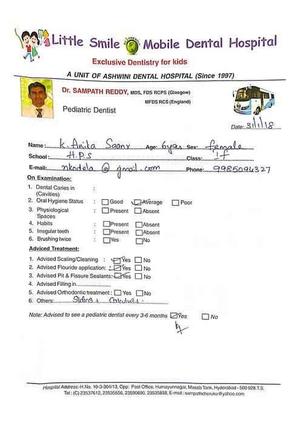 Little Smile Mobile Dental Hospital
Exclusive Dentistry for kids
A UNIT OF ASHWINI DENTAL HOSPITAL (Since 1997)
Dr. SAMPATH REDDY, MDS, FDS RCPS (Glasgow)
MFDS RCS (England)
Pediatric Dentist
Date: 3/1/18
Name: K. Anita Age: 6yrs Sex: female
School: H.P.S Class:
E-mail: @ gmail.com Phone: 9985094327
On Examination:
1. Dental Caries in :
(Cavities)
2. Oral Hygiene Status : Good Average Poor
3. Physiological : Present Absent
Spaces
4. Habits : Present Absent
5. Irregular teeth : Present Absent
6. Brushing twice : Yes No
Advised Treatment:
1. Advised Scaling/Cleaning : Yes No
2. Advised Flouride application: Yes No
3. Advised Pit & Fissure Sealants: Yes No
4. Advised Filling in
5. Advised Orthodontic treatment : Yes No
6. Others:
Note: Advised to see a pediatric dentist every 3-6 months Yes No
Hospital Address: H.No. 10-3-304/13, Opp. Post Office, Humayunnagar, Masab Tank, Hyderabad - 500 028 T.S.